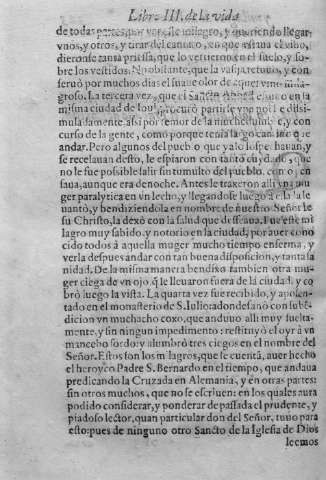 Libro III. de la vida
de todas partes, por ver este milagro, y queriendo llegar
vnos, y otros, y tirar del cantaro, en que estaua el vino,
dieronse tanta priessa, que lo vertieron en el suelo, y so-
bre los vestidos. No obstante, que la vasija retuuo, y con
seruò por muchos dias el suaue olor de aquel vino mila-
groso. La tercera vez, que el Santo Abad entrò en la
misma ciudad de procurò partirse y dissi-
muladamente, assi por temor de la muchedumbre, y con
curso de la gente, como porque tenia largo camino que
andar. Pero algunos del pueblo que ya lo sospechauan, y
se recelauan desto, le espiaron con tanto cuydado, que
no le fue possible salir sin tumulto del pueblo, como pen
saua, aunque era de noche. Antes le traxeron alli vna mu
ger paralytica en vn lecho, y llegandose luego a ella la le
uantò, y bendiziendola en nombre de nuestro Señor Ie
su Christo, la dexò con la salud que desseaua. Fue este mi
lagro muy sabido, y notorio en la ciudad, por auer cono
cido todos à aquella muger mucho tiempo enferma, y
verla despues andar con tan buena disposicion, y tanta sa
nidad. De la misma manera bendixo tambien otra mu-
ger ciega de vn ojo, q̃ le lleuaron fuera de la ciudad, y co
brò luego la vista. La quarta vez fue recebido, y aposen-
tado en el monasterio de S. donde sanò con su bē-
dicion vn muchacho coxo, que anduuo alli muy suelta-
mente, y sin ningun impedimento: restituyò el oyr à vn
mancebo sordo, y alumbrò tres ciegos en el nombre del
Señor. Estos son los milagros, que se cuentā, auer hecho
el heroyco Padre S. Bernardo en el tiempo, que andaua
predicando la Cruzada en Alemania, y en otras partes:
sin otros muchos, que no se escriuen: en los quales aura
podido considerar, y ponderar de passada el prudente, y
piadoso lector, quan particular don del Señor, tuuo para
esto: pues de ninguno otro Sancto de la Iglesia de Dios
leemos